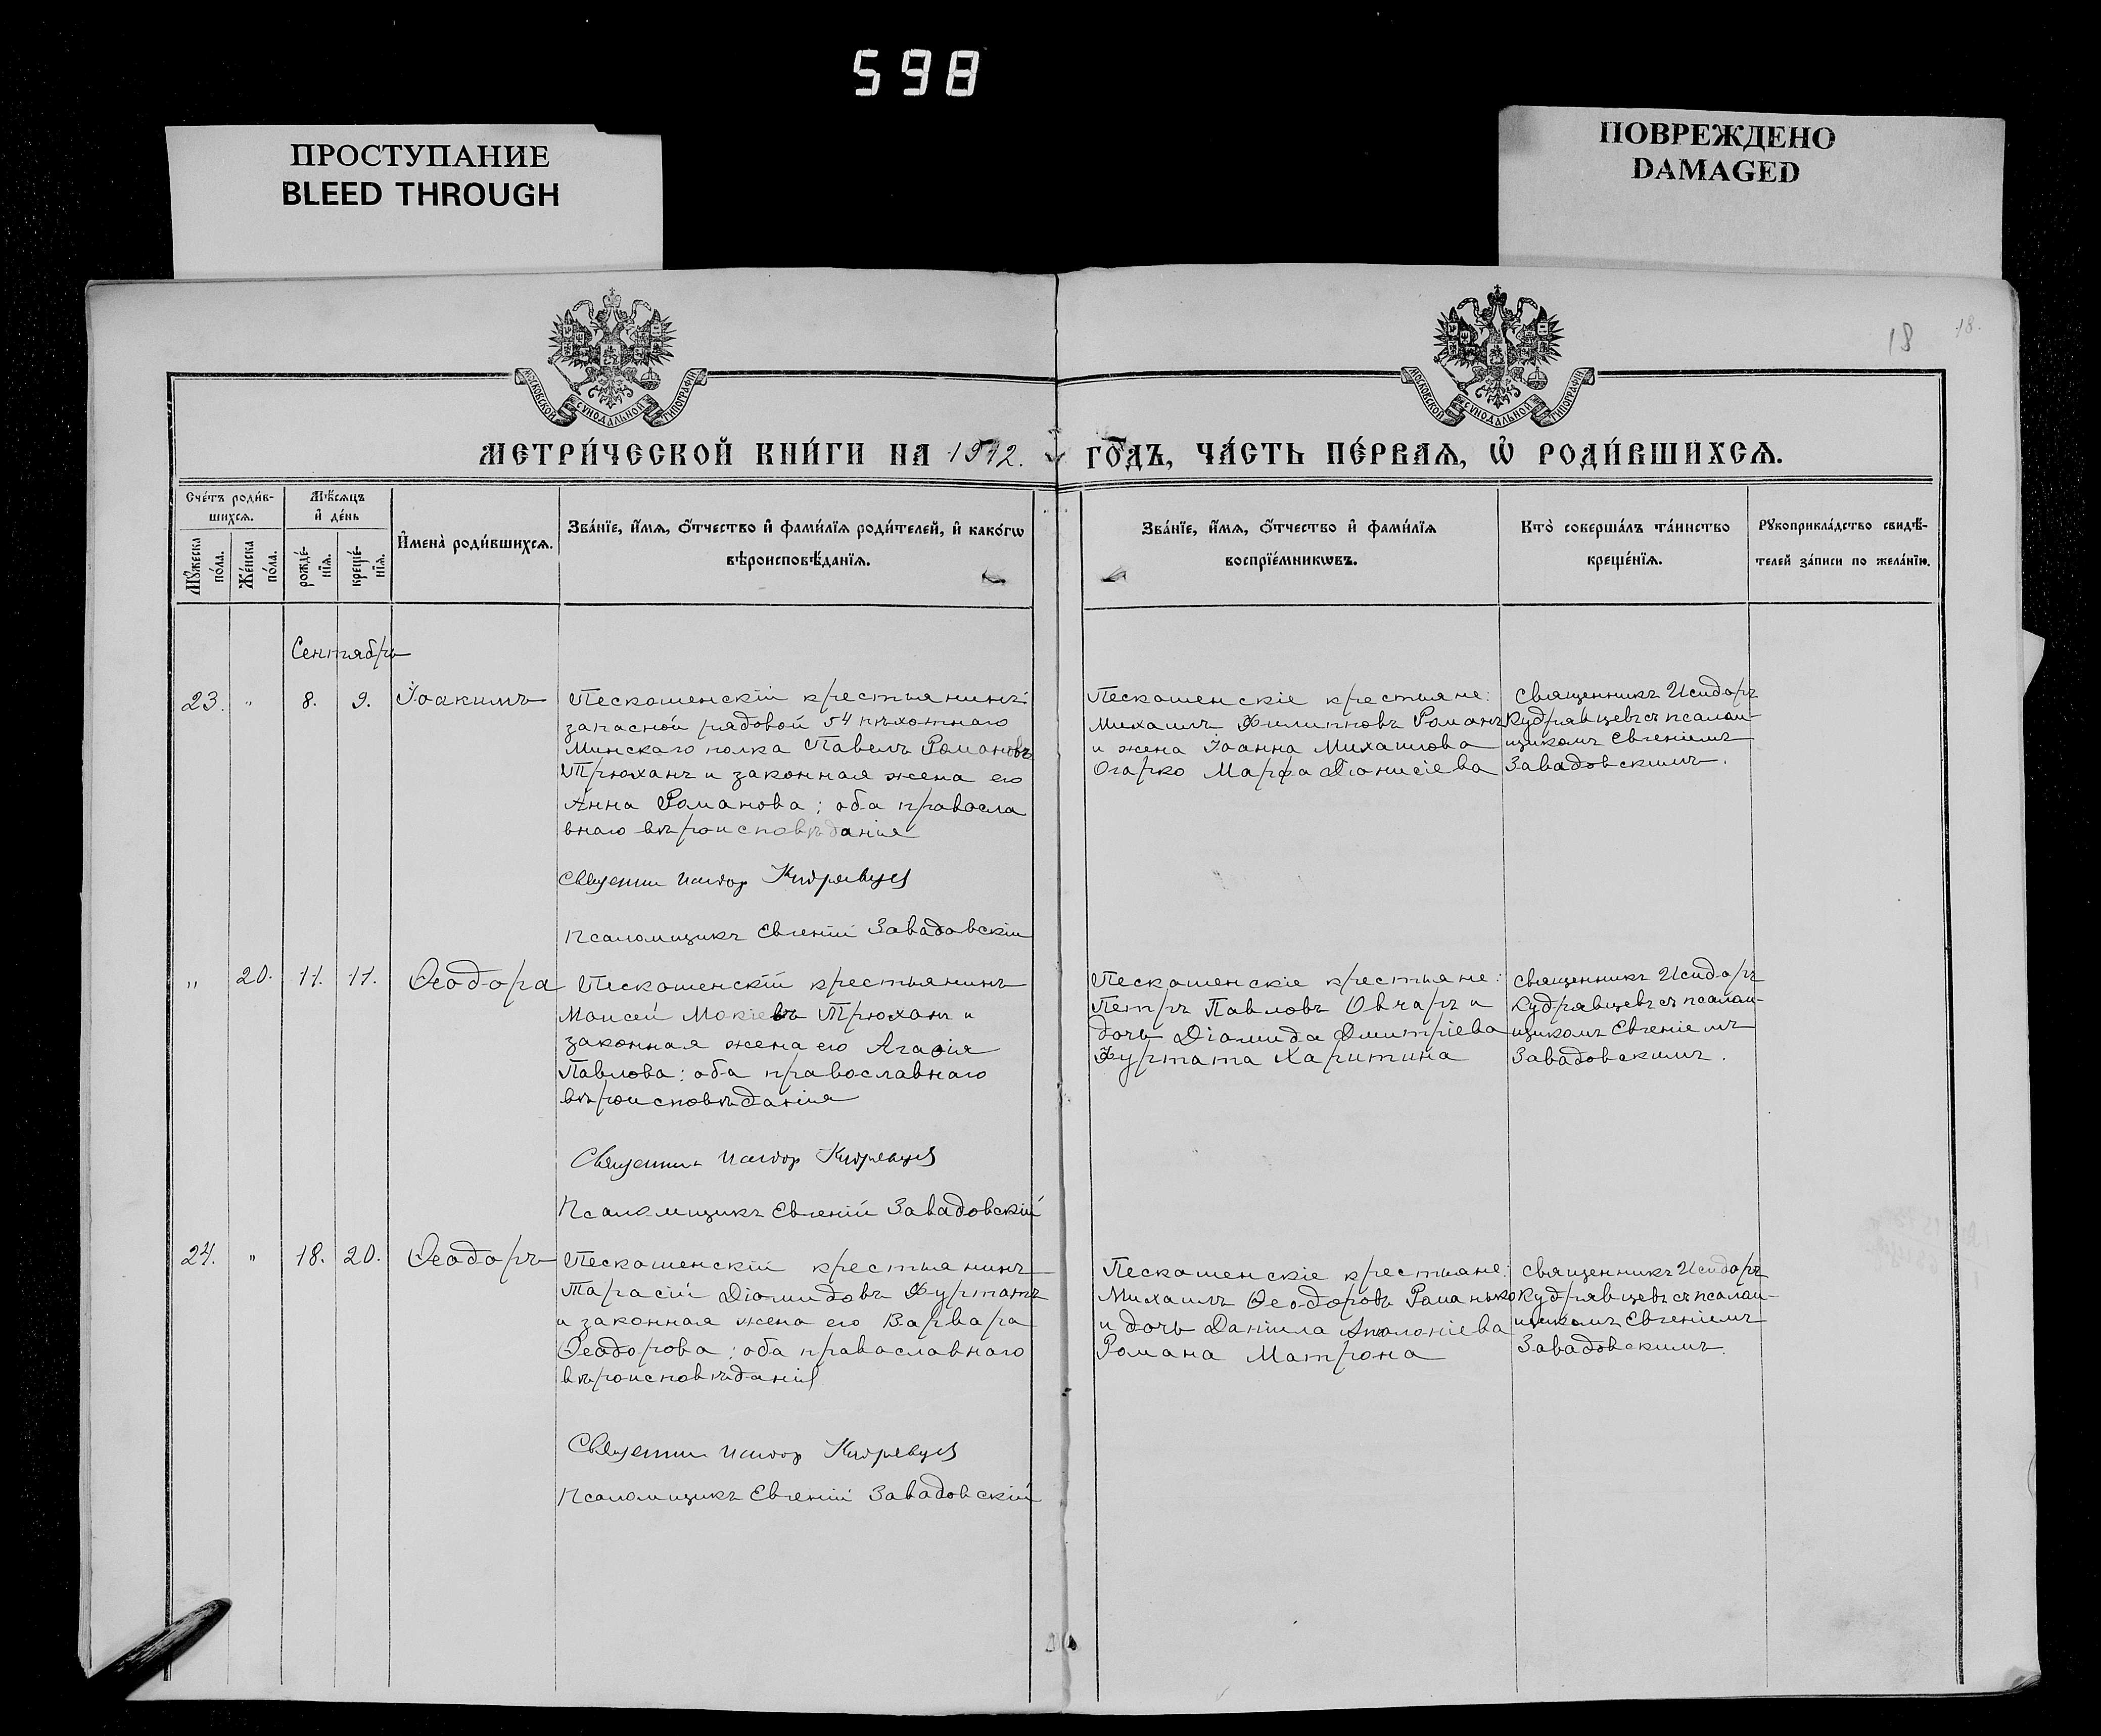 598
ПРОСТУПАНИЕ
BLEED THROUGH
ПОВРЕЖДЕНО
DAMAGED
18
18.
МОСКОВСКОЙ СѴНОДАЛЬНОЙ ТИПОГРАФІИ
МОСКОВСКОЙ СѴНОДАЛЬНОЙ ТИПОГРАФІИ
МЕТРИ́ЧЕСКОЙ КНИ́ГИ НА 1912. ГО́ДЪ, ЧА́СТЬ ПЕ́РВАѦ, Ѡ҆ РОДИ́ВШИХСѦ.
Сче́тъ роди́в-
шихсѧ.
Мꙋ́жеска по́ла.
Же́нска по́ла.
Мѣ́сѧцъ
и҆ де́нь
рожде́-
нїѧ.
креще́-
нїѧ.
И҆мена̀ роди́вшихсѧ.
Зва́нїе, и҆́мѧ, ѻ҆́тчество и҆ фами́лїѧ роди́телей, и҆ како́гѡ
вѣроисповѣ́данїѧ.
Зва́нїе, и҆́мѧ, ѻ҆́тчество и҆ фами́лїѧ
воспрїе́мникѡвъ.
Кто̀ соверша́лъ та́инство
креще́нїѧ.
Рꙋкоприкла́дство свидѣ́-
телей за́писи по жела́нїю.
Сентябрь
23. " 8. 9. Іоакимъ
Пескошенскій крестьянинъ
запасной рядовой 54 пѣхотнаго
Минскаго полка Павелъ Романовъ
Трюханъ и законная жена его
Анна Романова; оба правосла
внаго вѣроисповѣданія
Священник Исидор Кудрявцев
Псаломщикъ Евгеній Завадовскій
Пескошенскіе крестьяне:
Михаилъ Филипповъ Романъ
и жена Іоанна Михаилова
Огарко Марфа Діонисіева
Священникъ Исидоръ
Кудрявцевъ съ псалом-
щикомъ Евгеніемъ
Завадовскимъ.
" 20. 11. 11. Ѳеодора
Пескошенскій крестьянинъ
Моисей Мокіевъ Трюханъ и
законная жена его Агаѳія
Павлова: оба православнаго
вѣроисповѣданія
Священник Исидор Кудрявцев
Псаломщикъ Евгеній Завадовскій
Пескошенскіе крестьяне:
Петръ Павловъ Овчаръ и
дочь Діомида Дмитріева
Фуртата Харитина
Священникъ Исидоръ
Кудрявцевъ съ псалом-
щикомъ Евгеніемъ
Завадовскимъ.
24. " 18. 20. Ѳеодоръ
Пескошенскій крестьянинъ
Тарасій Діомидовъ Фуртатъ
и законная жена его Варвара
Ѳеодорова; оба православнаго
вѣроисповѣданія
Священник Исидор Кудрявцев
Псаломщикъ Евгеній Завадовскій
Пескошенскіе крестьяне:
Михаилъ Ѳеодоровъ Романько
и дочь Даніила Аполоніева
Романа Матрона
Священникъ Исидоръ
Кудрявцевъ съ псалом-
щикомъ Евгеніемъ
Завадовскимъ.